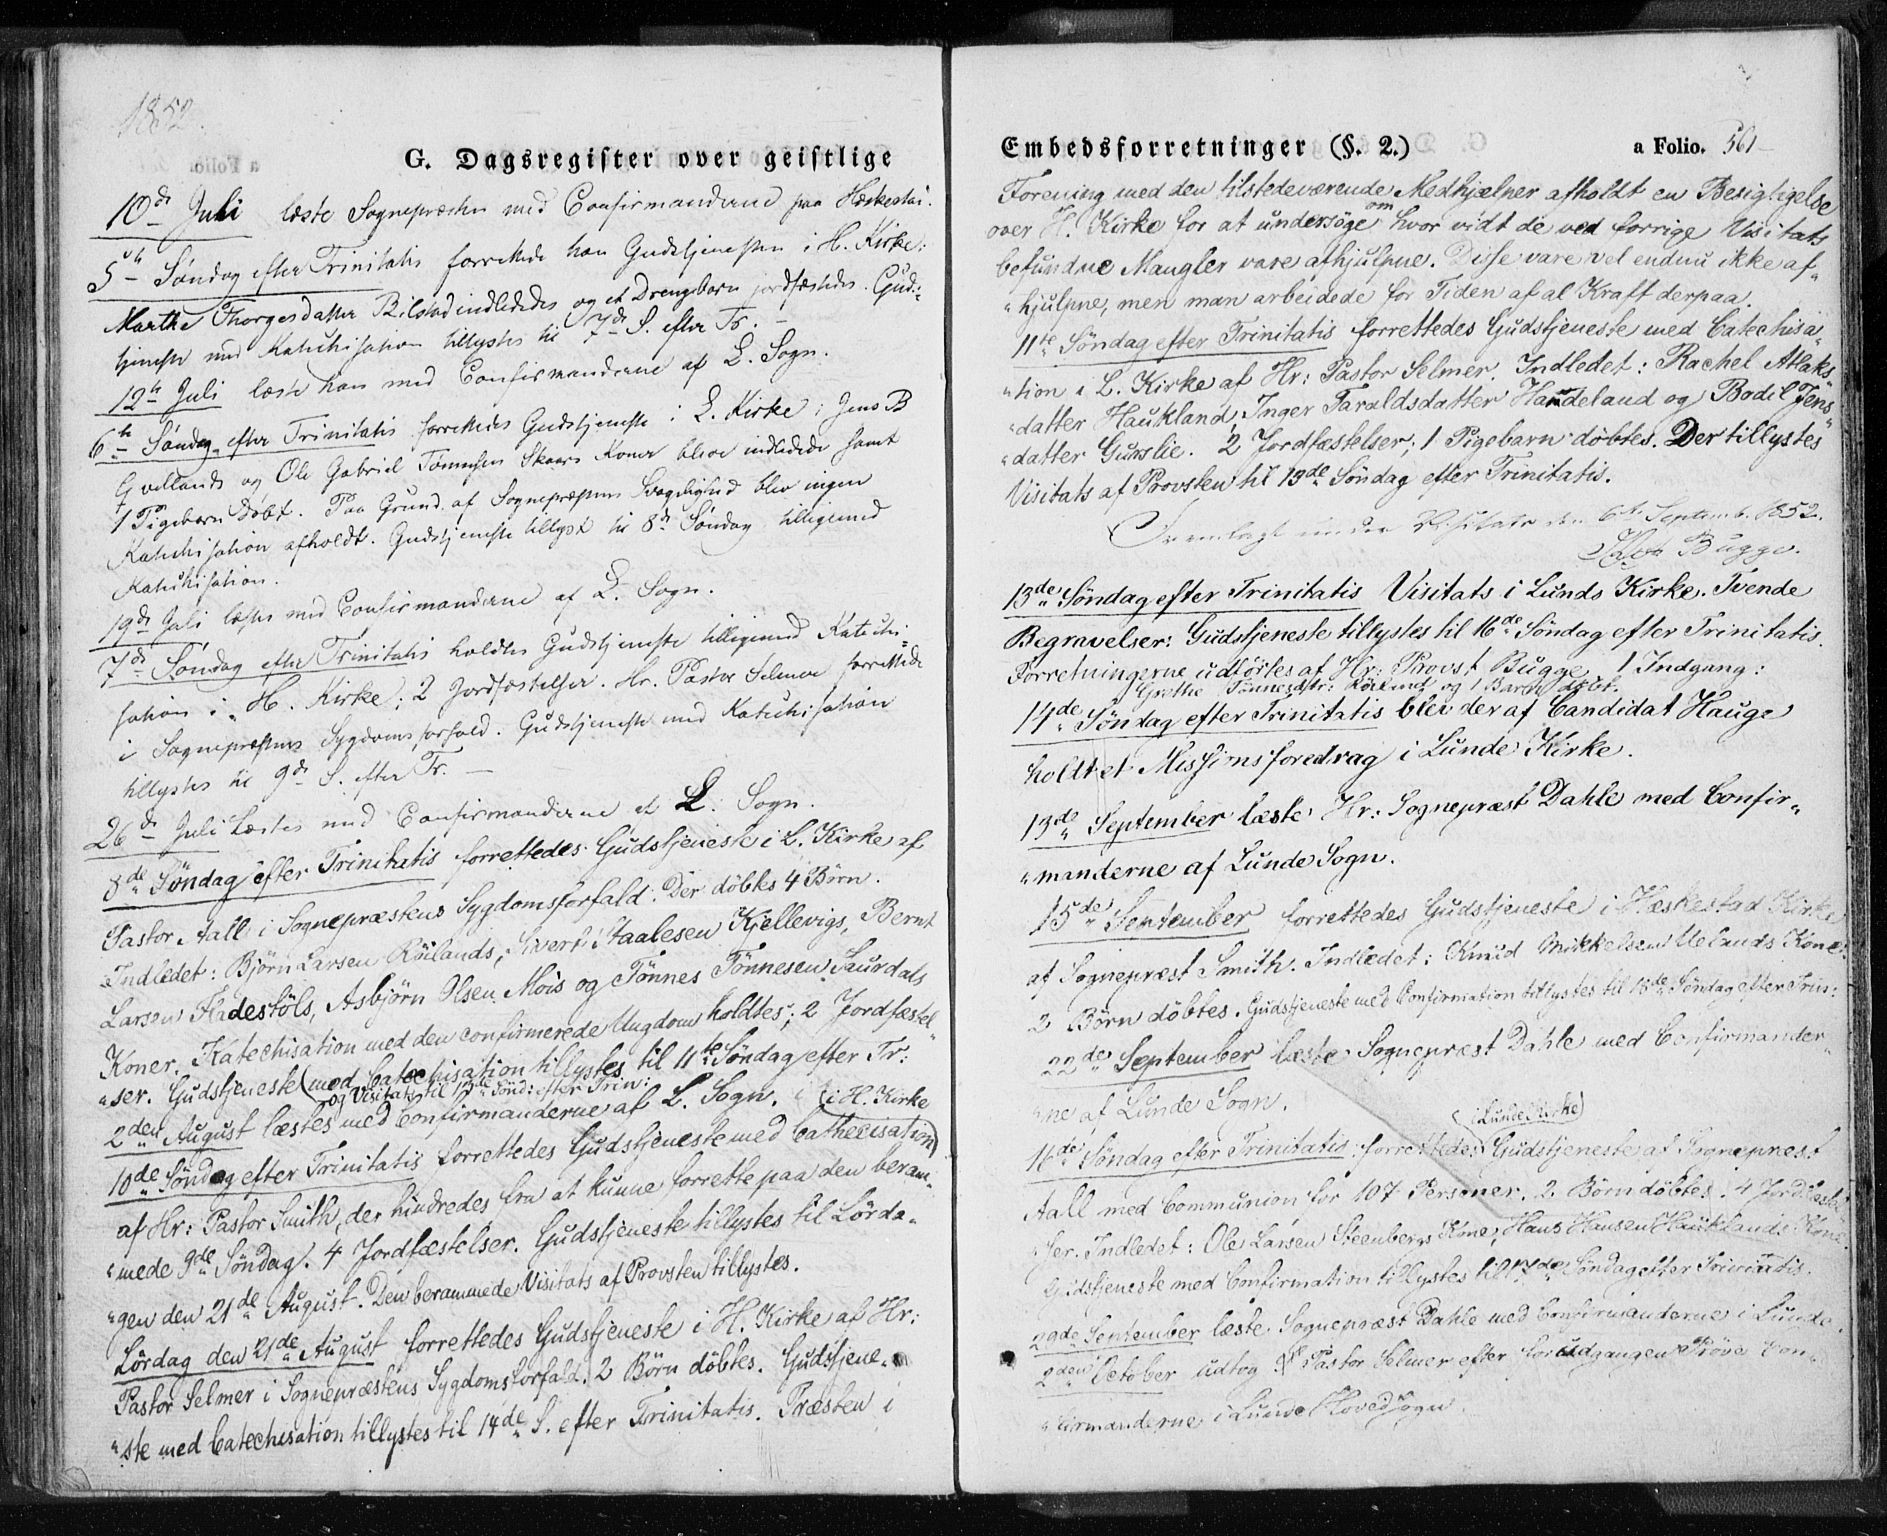 1852.
G. Dagsregister over geistlige
10de Juli læste Sognepræsten med Confirmanderne paa Hæskestad.
5te Søndag efter Trinitatis forrettede han Gudstjenesten i H. Kirke;
Marthe Thorgersdatter Bilstad indlededes og et Drengebarn jordfæstedes. Guds-
tjeneste med Katechisation tillystes til 7de S. efter Tr. –
12te Juli læste han med Confirmanderne af L. Sogn.
6te Søndag efter Trinitatis forrettedes Gudstjeneste i L. Kirke; Jens B
Gvellands og Ole Gabriel Tønnesen Skaars Koner bleve indledede samt
1 Pigebarn døbt. Paa Grund af Sognepræstens Svagelighed blev ingen
Katechisation afholdt. Gudstjeneste tillyst til 8de Søndag tilligemed
Katechisation.
19de Juli læstes med Confirmanderne af L. Sogn.
7de Søndag efter Trinitatis holdtes Gudstjeneste tilligemed Katechi-
sation i H. Kirke; 2 Jordfæstelser. Hr. Pastor Selmer forrettede
i Sognepræstens Sygdomsforfald. Gudstjeneste med Katechisation
tillystes til 9de S. efter Tr. –
26de Juli læstes med Confirmanderne af L. Sogn.
8de Søndag efter Trinitatis forrettedes Gudstjeneste i L. Kirke af
Pastor Aall i Sognepræstens Sygdomsforfald. Der døbtes 4 Børn.
Indledet: Bjørn Larsen Röilands, Sivert Staalesen Kjellevigs, Bernt
Larsen Fladestöls, Asbjörn Olsen Mois og Tönnes Tönnesen Saurdals
Koner. Katechisation med den confirmerede Ungdom holdtes; 2 Jordfæstel
"ser. Gudstjeneste (med Catechisation tillystes til 11te Söndag efter Tr:
og Visitats til 13de Sönd: efter Trin:
2den August læstes med Confirmanderne af L. Sogn. (i H. Kirke
10de Söndag efter Trinitatis forrettedes Gudstjeneste med Cathecisation)
af Hr: Pastor Smith, der hindredes fra at kunne forrette paa den beram-
"mede 9de Söndag. 4 Jordfæstelser. Gudstjeneste tillystes til Lörda-
"gen den 21de August. Den berammede Visitats af Provsten tillystes.
Lördag den 21de August forrettedes Gudstjeneste i H. Kirke af Hr:
Pastor Selmer i Sognepræstens Sygdomsforfald. 2 Börn döbtes. Gudstjene-
"ste med Catechisation tillystes til 14de S. efter Trinitatis. Præsten i
Embedsforretninger (§. 2.)
a Folio. 561
Forening med den tilstedeværende Medhjælper afholdt en Besigtigelse
over H. Kirke for at undersöge om hvor vidt de ved forrige Visitats
befundne Mangler vare afhjulpne. Disse vare vel endnu ikke af-
"hjulpne, men man arbeidede for Tiden af al Kraft derpaa.
11te Söndag efter Trinitatis forrettedes Gudstjeneste med Catechisa-
"tion i L. Kirke af Hr: Pastor Selmer. Indledet: Rachel Atlaks-
"datter Haukland, Inger Taraldsdatter Handeland og Bodil Jens
"datter Gurslie. 2 Jordfæstelser; 1 Pigebarn döbtes. Der tillystes
Visitats af Provsten til 13de Söndag efter Trinitatis.
Fremlagt under Visitats den 6te Septemb. 1852.
Bugge.
13de Söndag efter Trinitatis Visitats i Lunds Kirke. Tvende
Begravelser: Gudstjeneste tillystes til 16de Söndag efter Trinitatis.
Forretningerne udförtes af Hr: Provst Bugge, 1 Indgang:
Grethe Tönnesdtr: og 1 Barn döbt.
14de Söndag efter Trinitatis blev der af Candidat Hauge
holdt et Missionsforedrag i Lunde Kirke.
13de September læste Hr: Sognepræst Dahle med Confir-
"manderne af Lunde Sogn.
15de September forrettedes Gudstjeneste i Hæskestad Kirke
af Sognepræst Smith. Indledet: Knud Mikkelsen Uelands Kone.
2 Börn döbtes. Gudstjeneste med Confirmation tillystes til 18de Söndag efter Trin:
22de September læste Sognepræst Dahle med Confirmander-
"ne af Lunde Sogn.
(i Lunde Kirke)
16de Söndag efter Trinitatis forrettedes Gudstjeneste af Sognepræst
Aall med Communion for 107 Personer. 2 Börn döbtes. 4 Jordfæstel
"ser. Indledet: Ole Larsen Steenbergs Kone, Hans Hansen Hauklands Kone.
Gudstjeneste med Confirmation tillystes til 17de Söndag efter Trinitatis.
29de September læste Sognepræst Dahle med Confirmanderne i Lunde.
2den October udtog Pastor Selmer efter forudgangen Pröve Con-
"firmanderne i Lunde Hovedsogn.